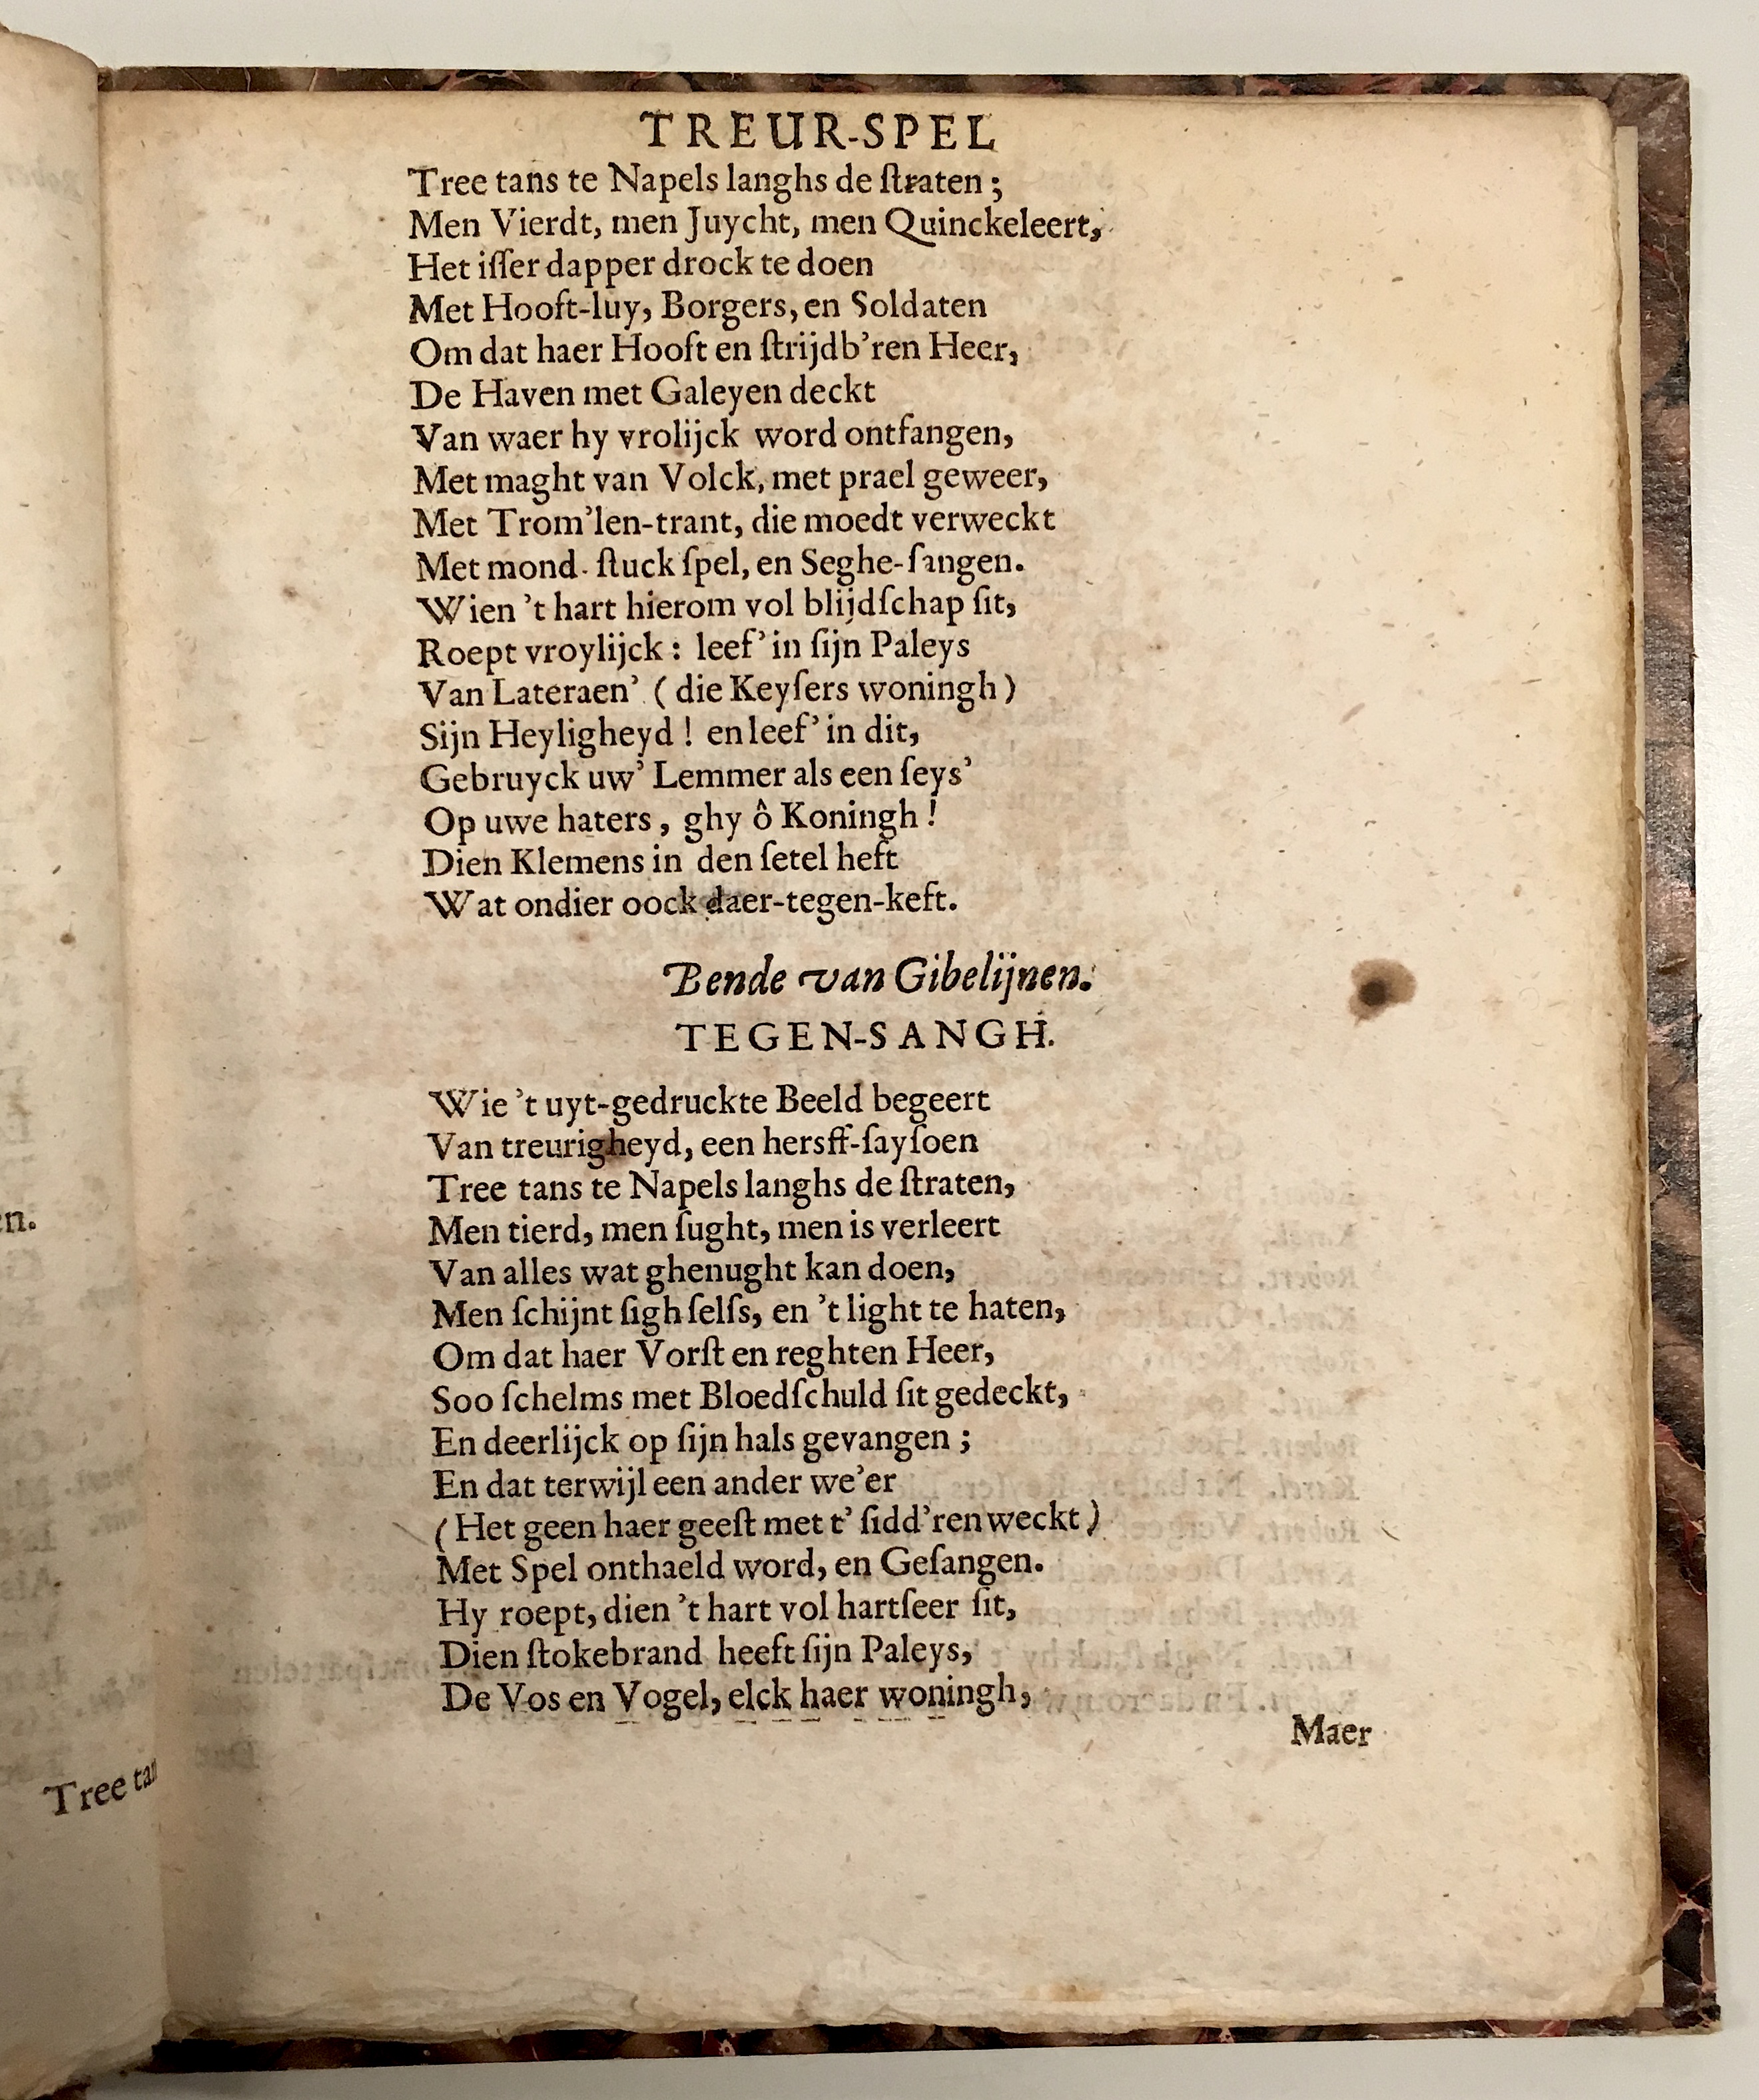 TREUR-SPEL
Tree tans te Napels langhs de ſtraten;
Men Vierdt, men Juycht, men Quinckeleert,
Het iſſer dapper drock te doen
Met Hooft-luy, Borgers, en Soldaten
Om dat haer Hooft en ſtrijdb'ren Heer,
De Haven met Galeyen deckt
Van waer hy vrolijck word ontfangen,
Met maght van Volck, met prael geweer,
Met Trom'len-trant, die moedt verweckt
Met mond-ſtuck ſpel, en Seghe-ſangen.
Wien 't hart hierom vol blijdſchap ſit,
Roept vroylijck: leef' in ſijn Paleys
Van Lateraen' (die Keyſers woningh)
Sijn Heyligheyd! en leef' in dit,
Gebruyck uw' Lemmer als een ſeys'
Op uwe haters, ghy ô Koningh!
Dien Klemens in den ſetel heft
Wat ondier oock daer-tegen-keft.
Bende van Gibelijnen.
TEGEN-SANGH.
Wie 't uyt-gedruckte Beeld begeert
Van treurigheyd, een herſſt-ſayſoen
Tree tans te Napels langhs de ſtraten,
Men tierd, men ſught, men is verleert
Van alles wat ghenught kan doen,
Men ſchijnt ſigh ſelſs, en 't light te haten,
Om dat haer Vorſt en reghten Heer,
Soo ſchelms met Bloedſchuld ſit gedeckt,
En deerlijck op ſijn hals gevangen;
En dat terwijl een ander we'er
(Het geen haer geeſt met t' ſidd'ren weckt)
Met Spel onthaeld word, en Geſangen.
Hy roept, dien 't hart vol hartſeer ſit,
Dien ſtokebrand heeft ſijn Paleys,
De Vos en Vogel, elck haer woningh,
Maer
en.
Tree tan